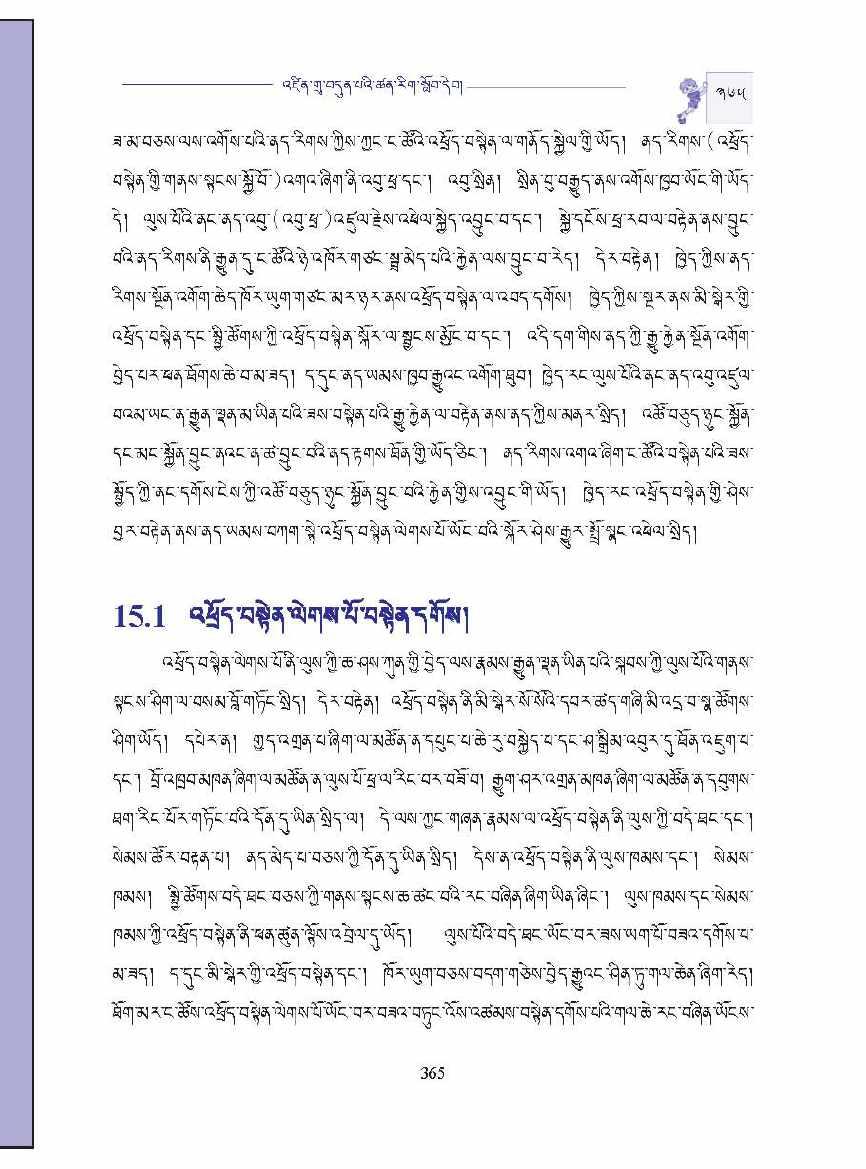 འཛིན་གྲྭ་བདུན་པའི་ཚན་རིག་སློབ་དེབ།
༣༦༥
ཟ་མ་བཅས་ལས་འགོས་པའི་ནད་རིགས་ཀྱིས་ཀྱང་ང་ཚོའི་འཕྲོད་བསྟེན་ལ་གནོད་སྐྱེལ་གྱི་ཡོད། ནད་རིགས་(འཕྲོད་
བསྟེན་གྱི་གནས་སྟངས་སྐྱོ་པོ་)འགའ་ཞིག་ནི་འབུ་ཕྲ་དང་། འབུ་སྲིན། སྲིན་བུ་བརྒྱུད་ནས་འགོས་ཁྱབ་ཡོང་གི་ཡོད་
དེ། ལུས་པོའི་ནང་ནད་འབུ་(འབུ་ཕྲ་)འཛུལ་རྗེས་འཕེལ་སྐྱེད་འབྱུང་བ་དང་། སྐྱེ་དངོས་ཕྲ་རབ་ལ་བརྟེན་ནས་བྱུང་
བའི་ནད་རིགས་ནི་རྒྱུན་དུ་ང་ཚོའི་ཉེ་འཁོར་གཙང་སྦྲ་མེད་པའི་རྐྱེན་ལས་བྱུང་བ་རེད། དེར་བརྟེན། ཁྱེད་ཀྱིས་ནད་
རིགས་སྔོན་འགོག་ཆེད་ཁོར་ཡུག་གཙང་མར་ཉར་ནས་འཕྲོད་བསྟེན་ལ་འབད་དགོས། ཁྱེད་ཀྱིས་སྔར་ནས་མི་སྒེར་གྱི་
འཕྲོད་བསྟེན་དང་སྤྱི་ཚོགས་ཀྱི་འཕྲོད་བསྟེན་སྐོར་ལ་སྦྱངས་མྱོང་བ་དང་། འདི་དག་གིས་ནད་ཀྱི་རྒྱུ་རྐྱེན་སྔོན་འགོག་
བྱེད་པར་ཕན་ཐོགས་ཆེ་བ་མ་ཟད། ད་དུང་ནད་ཡམས་ཁྱབ་རྒྱུའང་འགོག་ཐུབ། ཁྱེད་རང་ལུས་པོའི་ནང་ནད་འབུ་འཛུལ་
བའམ་ཡང་ན་རྒྱུན་ལྡན་མ་ཡིན་པའི་ཟས་བསྟེན་པའི་རྒྱུ་རྐྱེན་ལ་བརྟེན་ནས་ནད་ཀྱིས་མནར་སྲིད། འཚོ་བཅུད་ཉུང་སྐྱོན་
དང་མང་སྐྱོན་བྱུང་ནའང་ན་ཚ་བྱུང་བའི་ནད་རྟགས་ཐོན་གྱི་ཡོད་ཅིང་། ནད་རིགས་འགའ་ཞིག་ང་ཚོའི་བསྟེན་པའི་ཟས་
སྤྱོད་ཀྱི་ནང་དགོས་ངེས་ཀྱི་འཚོ་བཅུད་ཉུང་སྐྱོན་བྱུང་བའི་རྐྱེན་གྱིས་འབྱུང་གི་ཡོད། ཁྱེད་རང་འཕྲོད་བསྟེན་གྱི་ཤེས་
བྱར་བརྟེན་ནས་ནད་ཡམས་བཀག་སྟེ་འཕྲོད་བསྟེན་ལེགས་པོ་ཡོང་བའི་སྐོར་ཤེས་རྒྱུར་སྤྲོ་སྣང་འཕེལ་སྲིད།
15.1 འཕྲོད་བསྟེན་ལེགས་པོ་བསྟེན་དགོས།
འཕྲོད་བསྟེན་ལེགས་པོ་ནི་ལུས་ཀྱི་ཆ་ཤས་ཀུན་གྱི་བྱེད་ལས་རྣམས་རྒྱུན་ལྡན་ཡིན་པའི་སྐབས་ཀྱི་ལུས་པོའི་གནས་
སྟངས་ཤིག་ལ་བསམ་བློ་གཏོང་སྲིད། དེར་བརྟེན། འཕྲོད་བསྟེན་ནི་མི་སྒེར་སོ་སོའི་དབར་ཚད་གཞི་མི་འདྲ་བ་སྣ་ཚོགས་
ཤིག་ཡོད། དཔེར་ན། གྱད་འགྲན་པ་ཞིག་ལ་མཚོན་ན་དཔུང་པ་ཆེ་རུ་བསྐྱེད་པ་དང་ཤ་སྒྲིམ་འབུར་དུ་ཐོན་འཇུག་པ་
དང་། བྲོ་འཁྲབ་མཁན་ཞིག་ལ་མཚོན་ན་ལུས་པོ་ཕྲ་ལ་རིང་བར་བཟོ་བ། རྒྱུག་ཤར་འགྲན་མཁན་ཞིག་ལ་མཚོན་ན་དབུགས་
ཐག་རིང་པོར་གཏོང་བའི་དོན་དུ་ཡིན་སྲིད་ལ། དེ་ལས་ཀྱང་གཞན་རྣམས་ལ་འཕྲོད་བསྟེན་ནི་ལུས་ཀྱི་བདེ་ཐང་དང་།
སེམས་ཚོར་བརྟན་པ། ནད་མེད་པ་བཅས་ཀྱི་དོན་དུ་ཡིན་སྲིད། དེས་ན་འཕྲོད་བསྟེན་ནི་ལུས་ཁམས་དང་། སེམས་
ཁམས། སྤྱི་ཚོགས་བདེ་ཐང་བཅས་ཀྱི་གནས་སྟངས་ཆ་ཚང་བའི་རང་བཞིན་ཞིག་ཡིན་ཞིང་། ལུས་ཁམས་དང་སེམས་
ཁམས་ཀྱི་འཕྲོད་བསྟེན་ནི་ཕན་ཚུན་ལྟོས་འབྲེལ་དུ་ཡོད། ལུས་པོའི་བདེ་ཐང་ཡོང་བར་ཟས་ཡག་པོ་བཟའ་དགོས་པ་
མ་ཟད། ད་དུང་མི་སྒེར་གྱི་འཕྲོད་བསྟེན་དང་། ཁོར་ཡུག་བཅས་བདག་གཅེས་བྱེད་རྒྱུའང་ཤིན་ཏུ་གལ་ཆེན་ཞིག་རེད།
ཐོག་མར་ང་ཚོས་འཕྲོད་བསྟེན་ལེགས་པོ་ཡོང་བར་བཟའ་བཏུང་འོས་འཚམས་བསྟེན་དགོས་པའི་གལ་ཆེ་རང་བཞིན་ཡོངས་
365